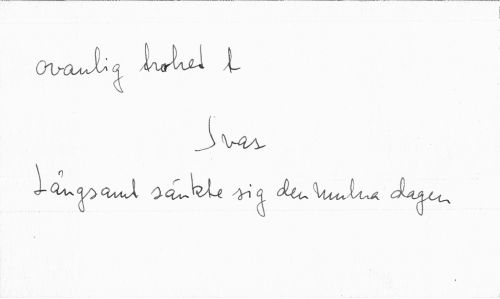 ovanlig trohet t
Ivas
Långsamt sänkte sig den mulna dagen